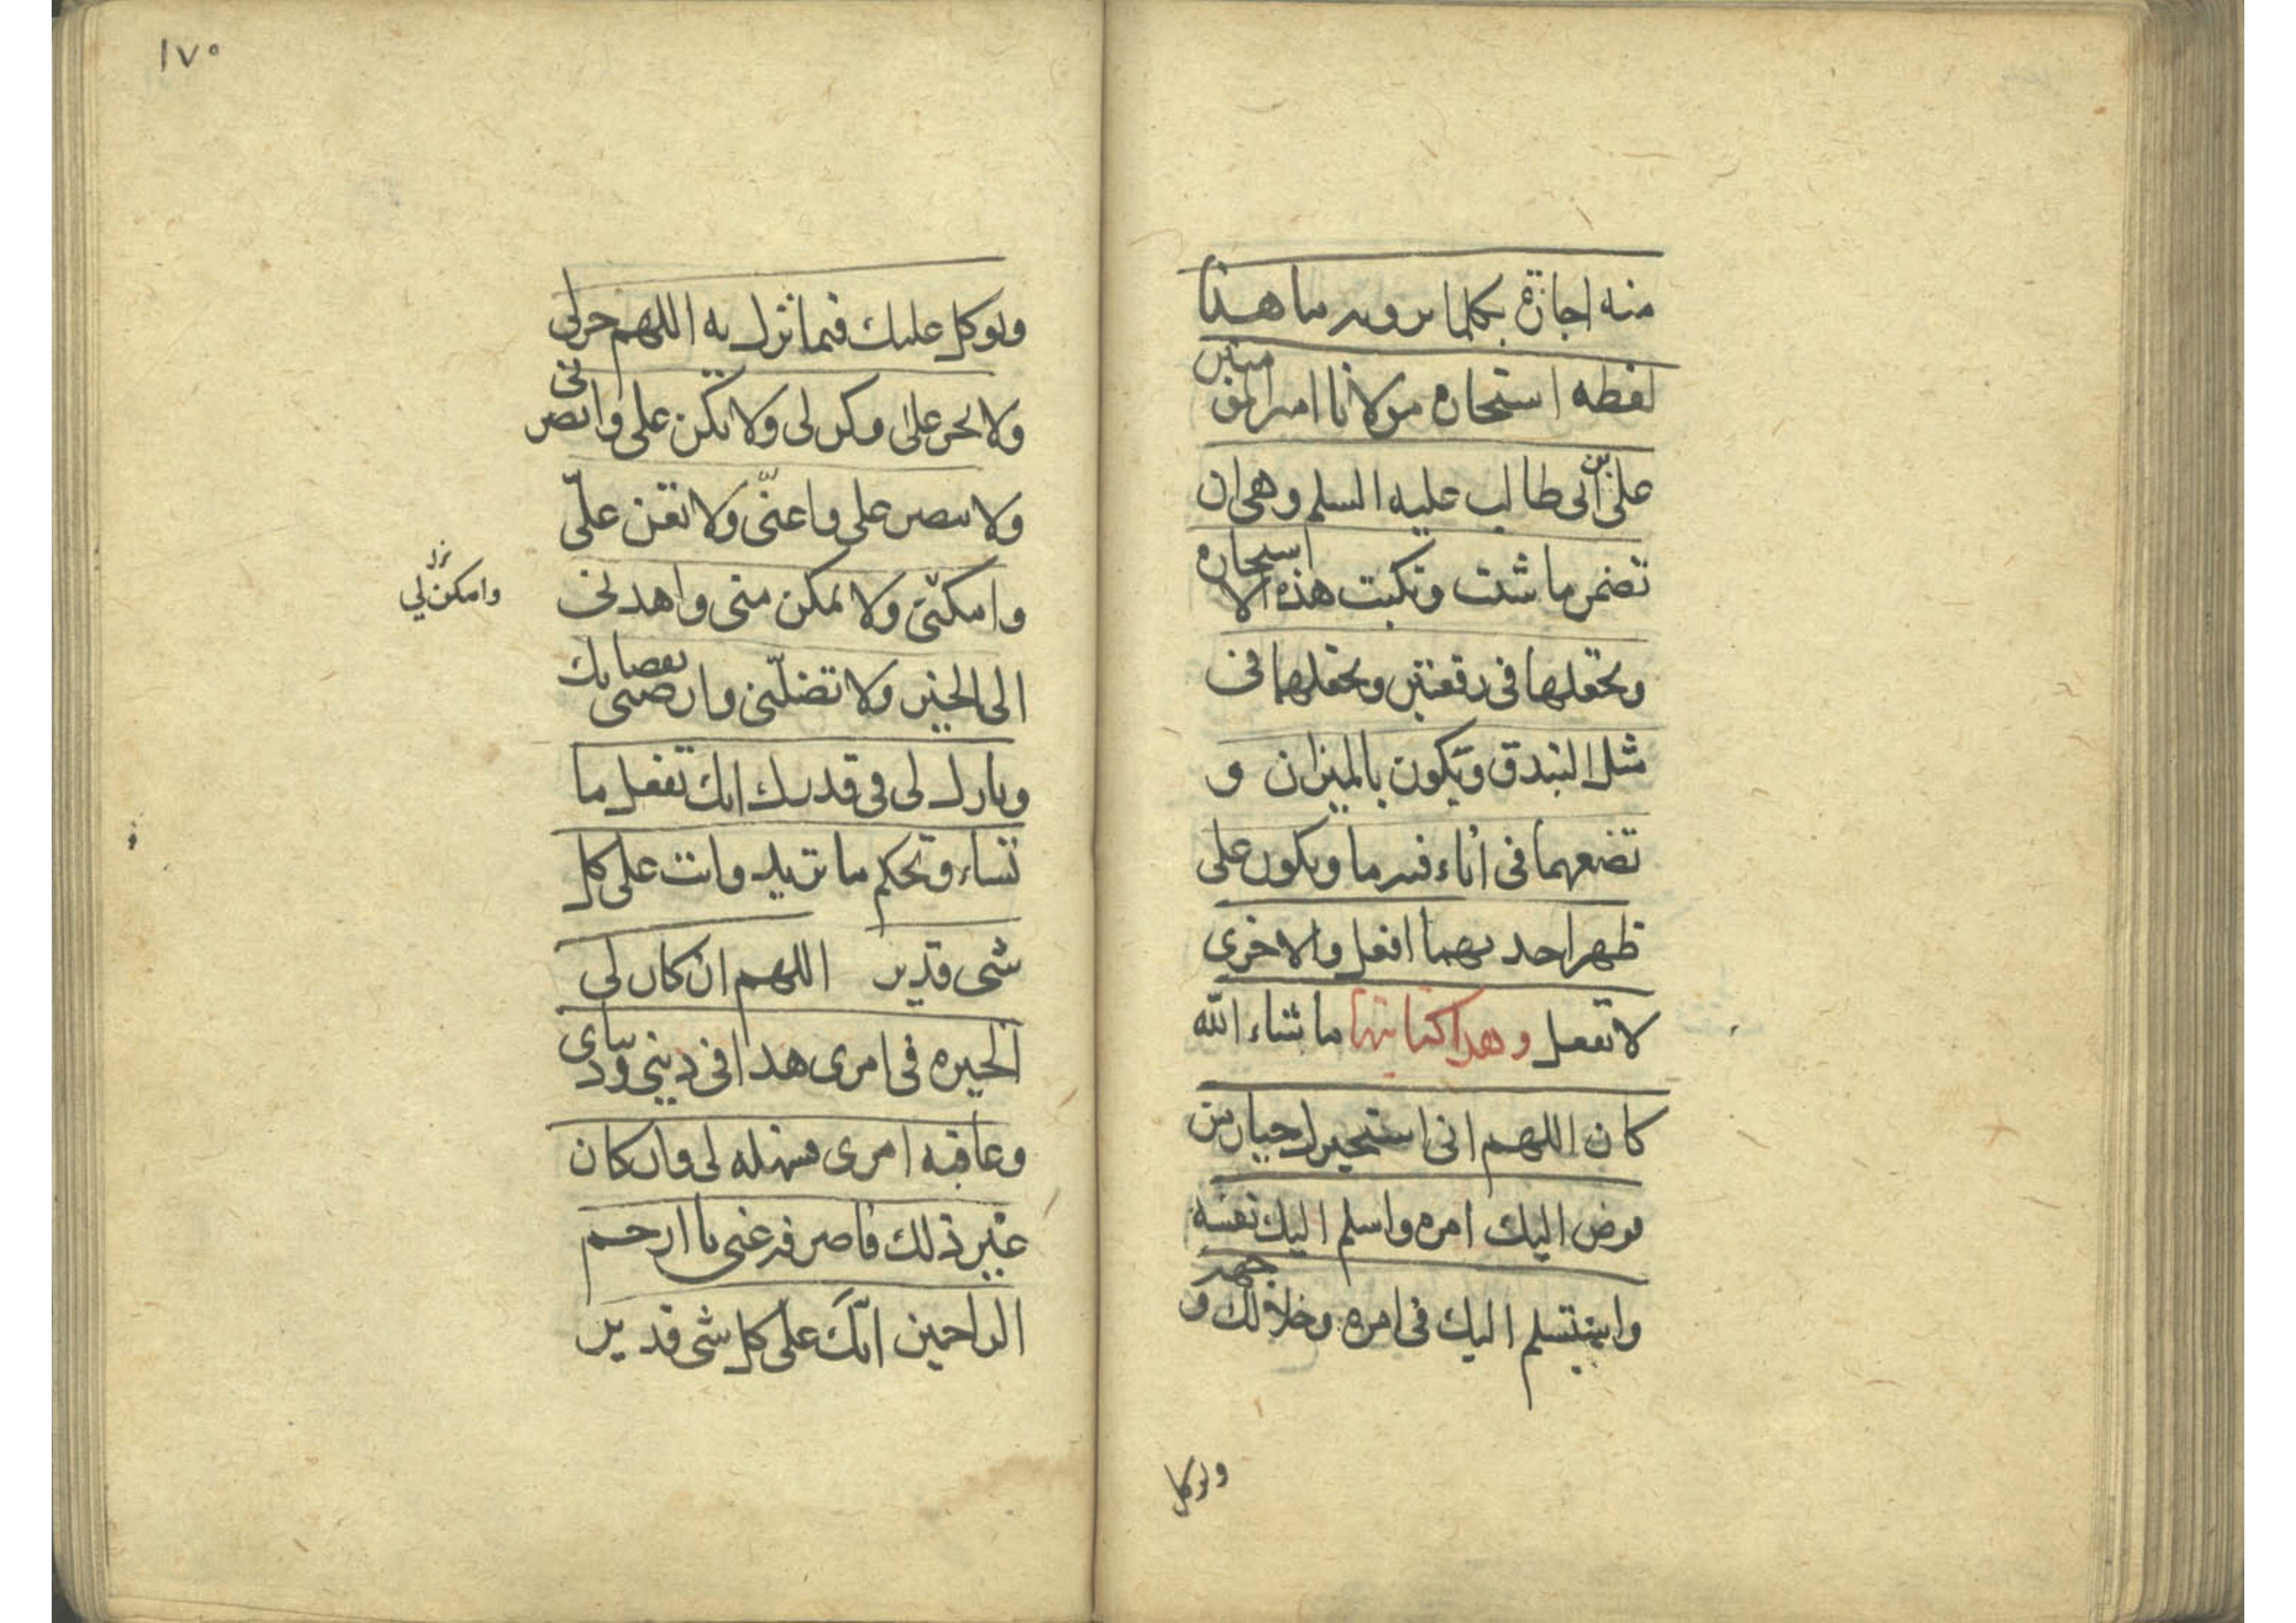 منه اجازة بكلما يرويه ما هذا
لفظه استخارة مولانا امير المؤمنين
علي بن ابى طالب عليه السلم وهى ان
تضمر ما شئت وتكتب هذه الاستخاره
وتجعلها فى رقعتين وتجعلهما فى
مثل البندق وتكون بالميزان و
تضعهما فى اناء فيه ما ويكون على
ظهر احديهما افعل والاخرى
لا تفعل وهذا كتابتها ما شاء الله
كان اللهم انى استخيرك خيار من
فوض اليك امره واسلم اليك نفسه
واستسلم اليك فى امره وخلا لك وجهه و
وتوكل
١٧٠
وتوكل عليك فيما نزل به اللهم خر لى
ولا تخر على وكن لى ولا تكن على وانصرنى
ولا تنصر على واعنّى ولا تعن علىّ
وامكنّى ولا تمكن منى واهدنى
وامكن لي
الى الخير ولا تضلّنى وارضنى بقضائك
وبارك لى فى قدرك انك تفعل ما
تشاء وتحكم ما تريد وانت على كل
شى قدير اللهم ان كان لى
الخيره فى امرى هذا فى دينى ودنياى
وعاقبه امرى فسهله لى وان كان
غير ذلك فاصرفه عنى يا ارحم
الراحمين انّك على كل شى قدير